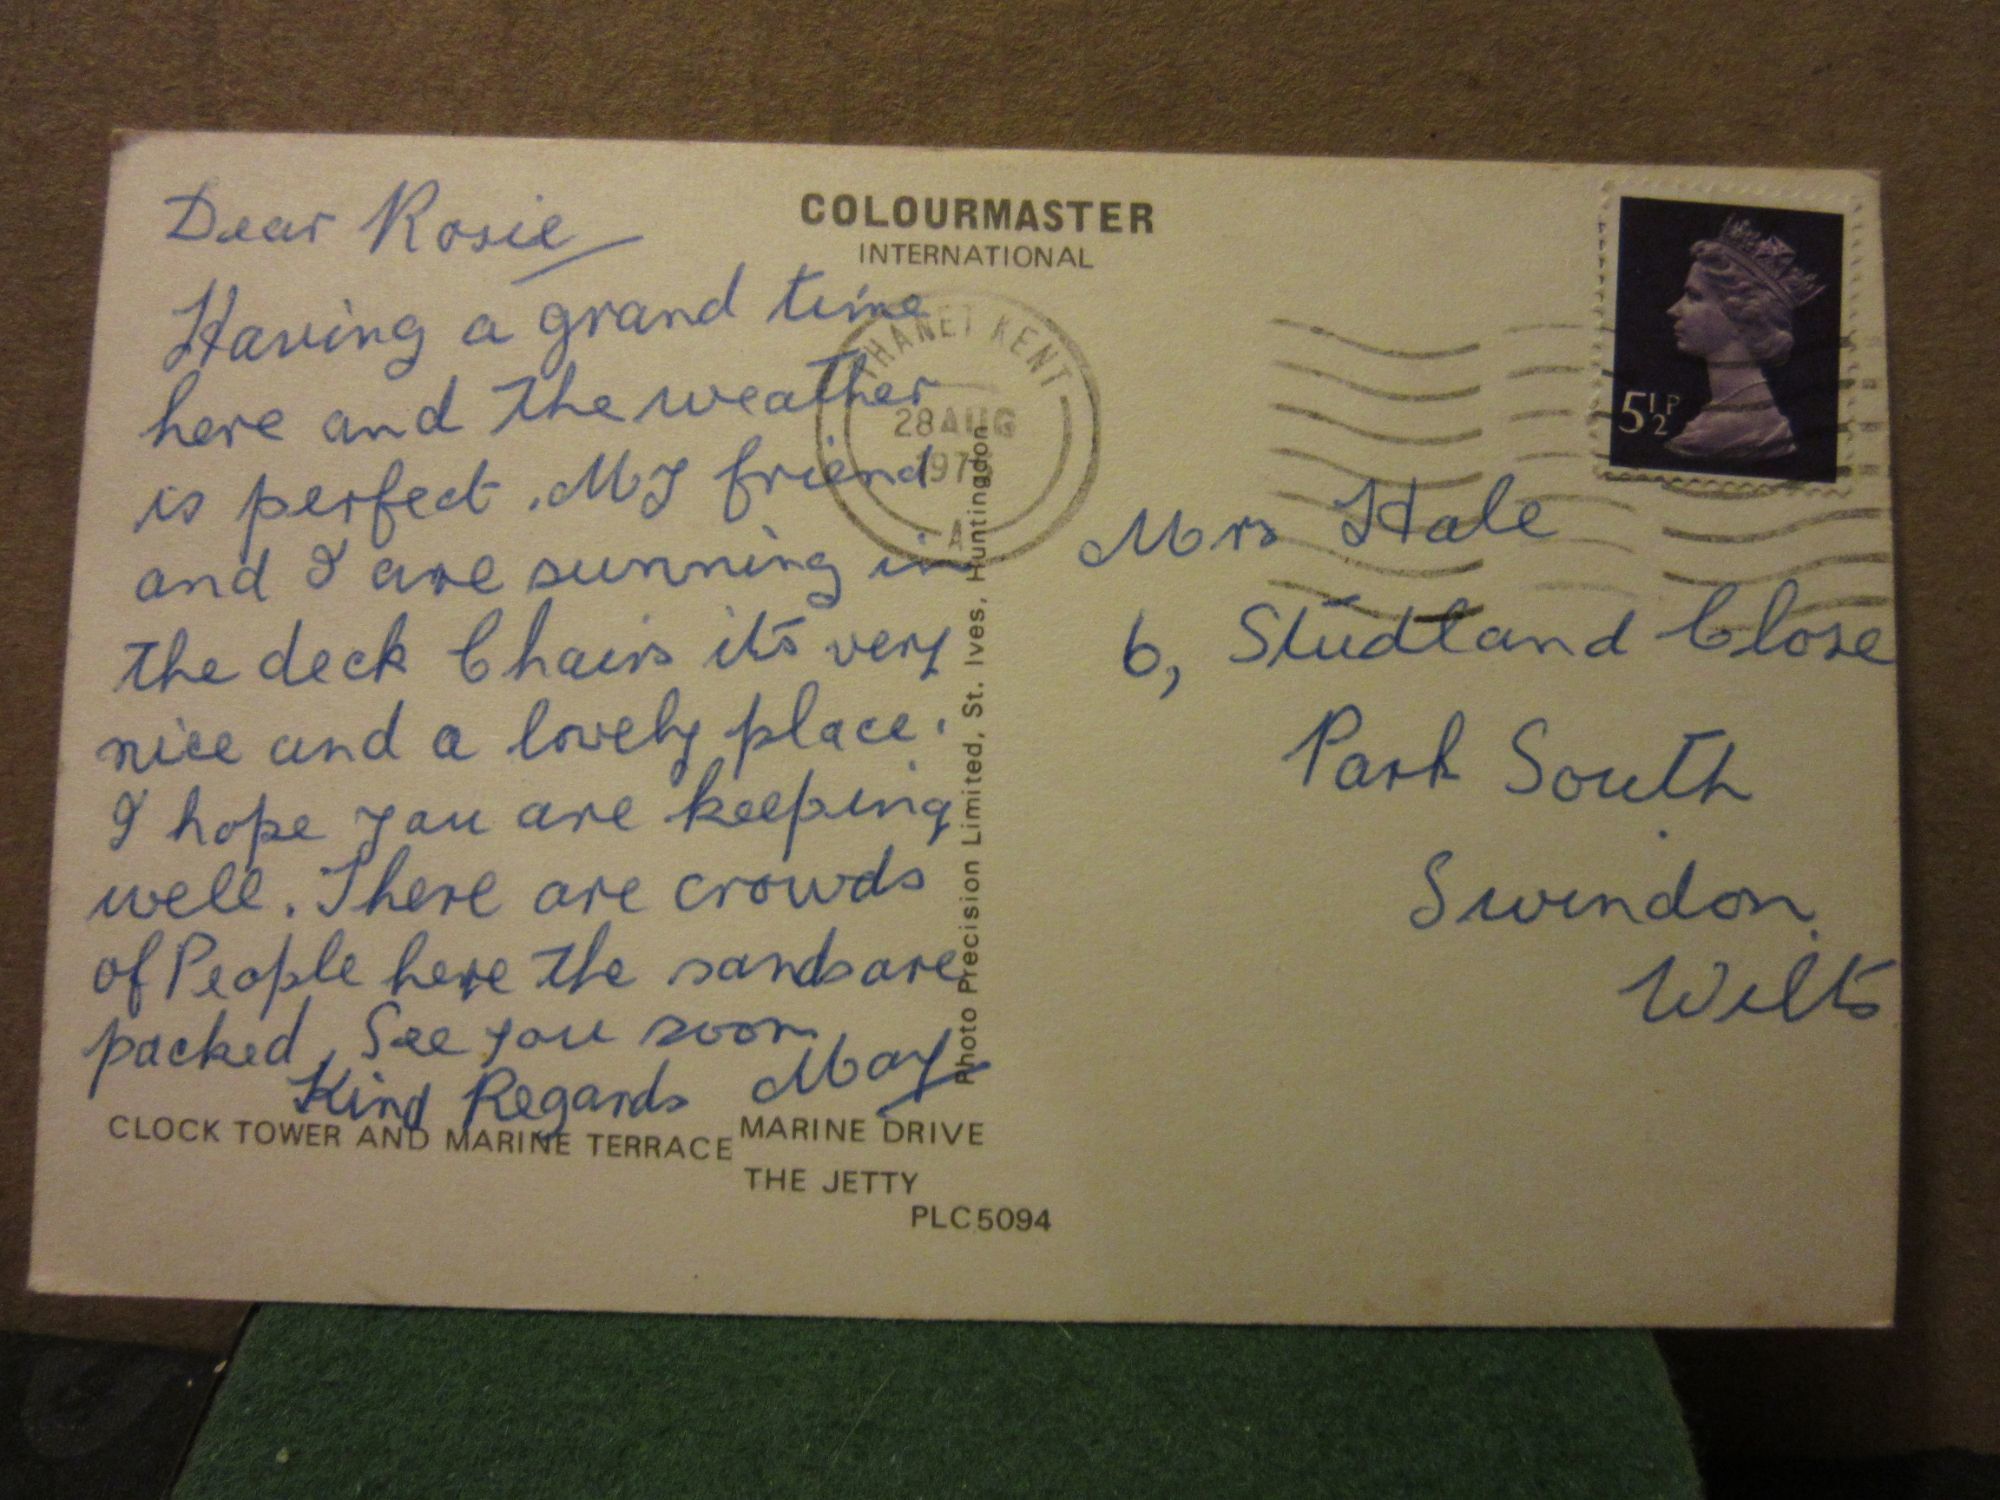 Dear Rosie
Having a grand time
here and the weather
is perfect. My friend
and I are sunning in
the deck Chairs its very
nice and a lovely place.
I hope you are keeping
well. There are crowds
of People here the sands are
packed. See you soon
Kind Regards May
CLOCK TOWER AND MARINE TERRACE
MARINE DRIVE
THE JETTY
PLC5094
COLOURMASTER
INTERNATIONAL
THANET KENT
28 AUG
A
Photo Precision Limited, St. Ives, Huntingdon
5½P
Mrs Hale
6, Studland Close
Park South
Swindon
Wilts